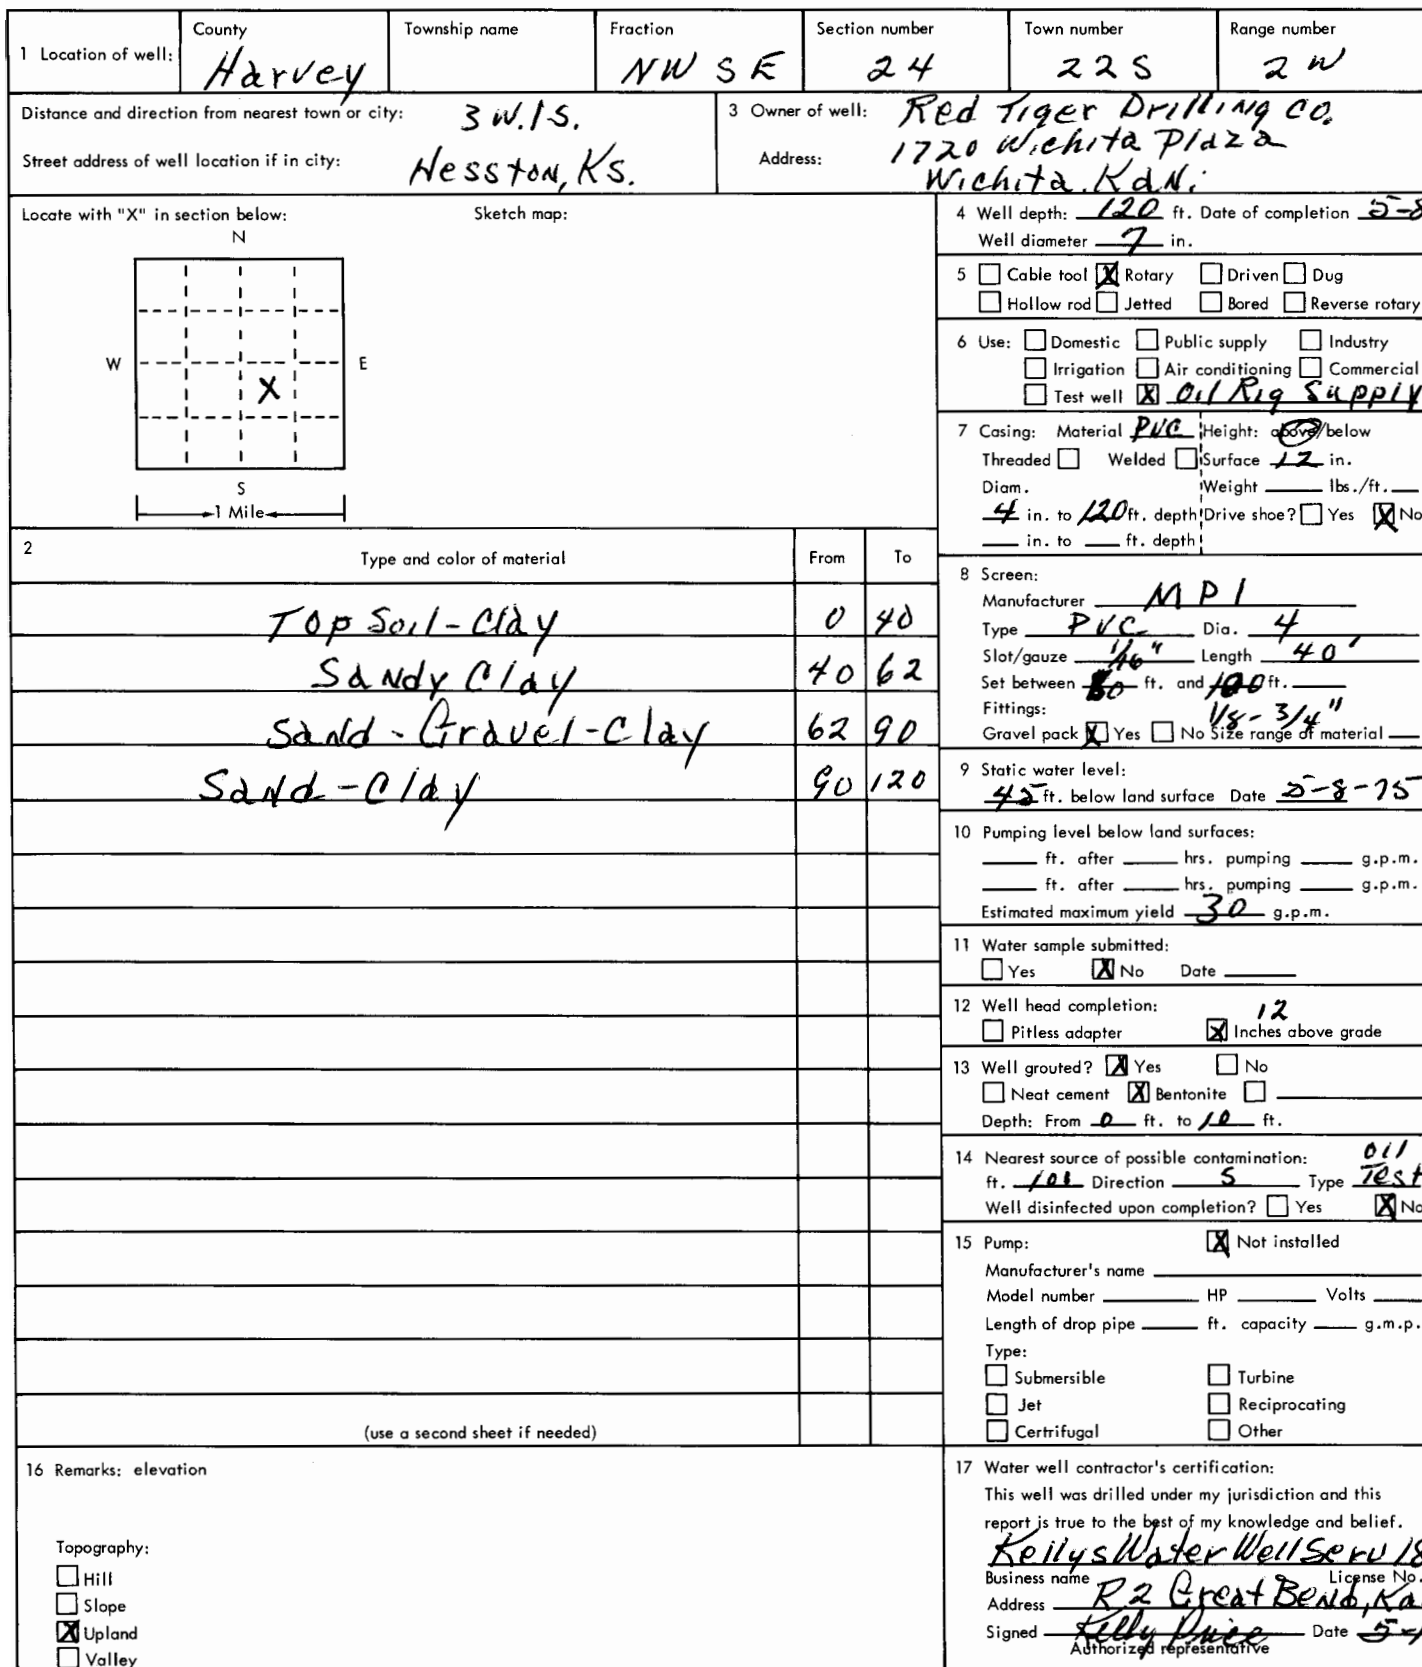 1 Location of well: County Township name Fraction Section number Town number Range number
Harvey NW SE 24 22S 2W
Distance and direction from nearest town or city: 3 W. 1 S.
Street address of well location if in city: Hesston, Ks.
3 Owner of well: Red Tiger Drilling Co.
Address: 1720 Wichita Plaza
Wichita, Kan.
Locate with "X" in section below: Sketch map:
N
W E
X
S
1 Mile
2 Type and color of material From To
Top Soil - Clay 0 40
Sandy Clay 40 62
Sand - Gravel - Clay 62 90
Sand - Clay 90 120
(use a second sheet if needed)
4 Well depth: 120 ft. Date of completion 5-8
Well diameter 7 in.
5 Cable tool X Rotary Driven Dug
Hollow rod Jetted Bored Reverse rotary
6 Use: Domestic Public supply Industry
Irrigation Air conditioning Commercial
Test well X Oil Rig Supply
7 Casing: Material PVC Height: above/below
Threaded Welded Surface 12 in.
Diam. Weight lbs./ft.
4 in. to 120 ft. depth Drive shoe? Yes X No
in. to ft. depth
8 Screen:
Manufacturer MPI
Type PVC Dia. 4
Slot/gauze 1/16" Length 40'
Set between ft. and ft.
Fittings: 1/8 - 3/4"
Gravel pack X Yes No Size range of material
9 Static water level:
45 ft. below land surface Date 5-8-75
10 Pumping level below land surfaces:
ft. after hrs. pumping g.p.m.
ft. after hrs. pumping g.p.m.
Estimated maximum yield 30 g.p.m.
11 Water sample submitted:
Yes X No Date
12 Well head completion: 12
Pitless adapter X Inches above grade
13 Well grouted? X Yes No
Neat cement X Bentonite
Depth: From 0 ft. to 10 ft.
14 Nearest source of possible contamination: oil
ft. Direction S Type Test
Well disinfected upon completion? Yes X No
15 Pump: X Not installed
Manufacturer's name
Model number HP Volts
Length of drop pipe ft. capacity g.m.p.
Type:
Submersible Turbine
Jet Reciprocating
Certrifugal Other
16 Remarks: elevation
Topography:
Hill
Slope
X Upland
Valley
17 Water well contractor's certification:
This well was drilled under my jurisdiction and this
report is true to the best of my knowledge and belief.
Kellys Water Well Serv 18
Business name License No.
Address R2 Great Bend, Ka
Signed Kelly Price Date 5-
Authorized representative